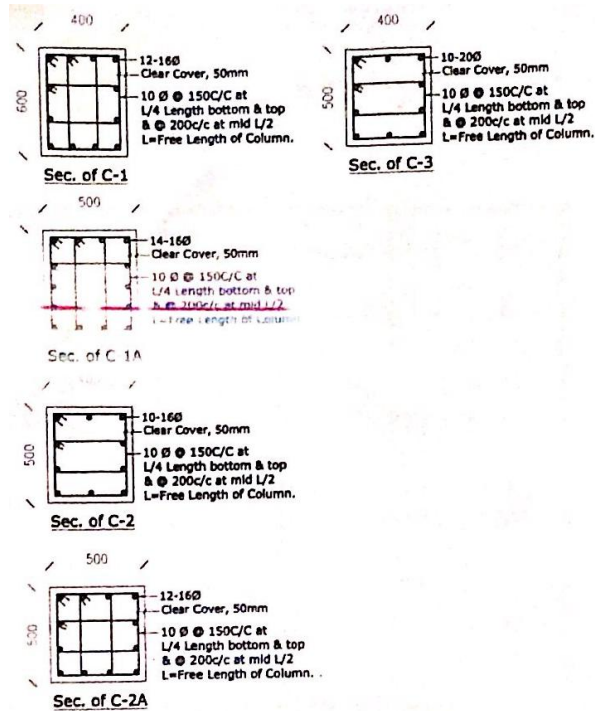 400
600
12-16Ø
Clear Cover, 50mm
10 Ø @ 150C/C at
L/4 Length bottom & top
& @ 200c/c at mid L/2
L=Free Length of Column.
Sec. of C-1
400
500
10-20Ø
Clear Cover, 50mm
10 Ø @ 150C/C at
L/4 Length bottom & top
& @ 200c/c at mid L/2
L=Free Length of Column.
Sec. of C-3
500
14-16Ø
Clear Cover, 50mm
10 Ø @ 150C/C at
L/4 Length bottom & top
& @ 200c/c at mid L/2
L=Free Length of Column
Sec. of C-1A
500
10-16Ø
Clear Cover, 50mm
10 Ø @ 150C/C at
L/4 Length bottom & top
& @ 200c/c at mid L/2
L=Free Length of Column.
Sec. of C-2
500
500
12-16Ø
Clear Cover, 50mm
10 Ø @ 150C/C at
L/4 Length bottom & top
& @ 200c/c at mid L/2
L=Free Length of Column.
Sec. of C-2A